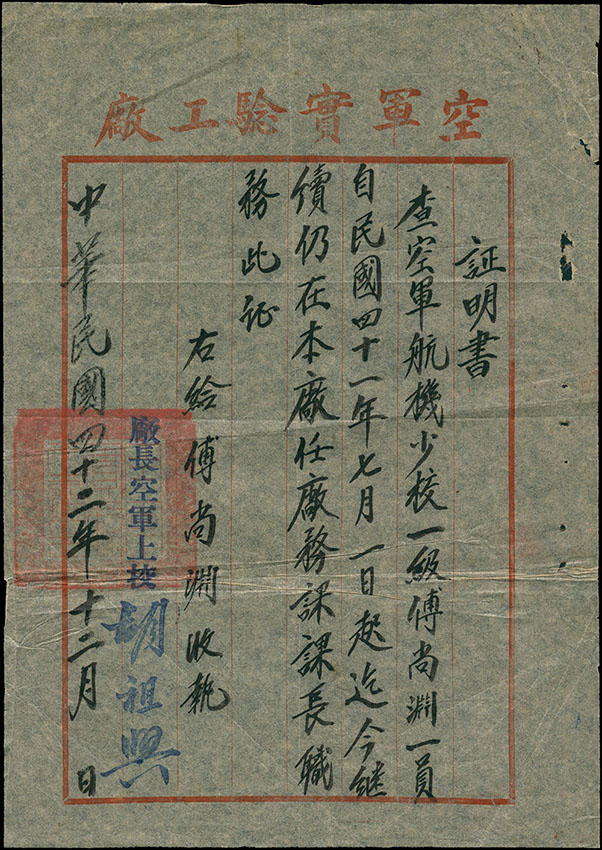 空軍實驗工廠
証明書
查空軍航機少校一級傅尚淵一員
自民國四十一年七月一日起迄今継
續仍在本廠任廠務課課長職
務此证
右給傅尚淵收執
廠長空軍上校胡祖興
中華民國四十二年十二月 日